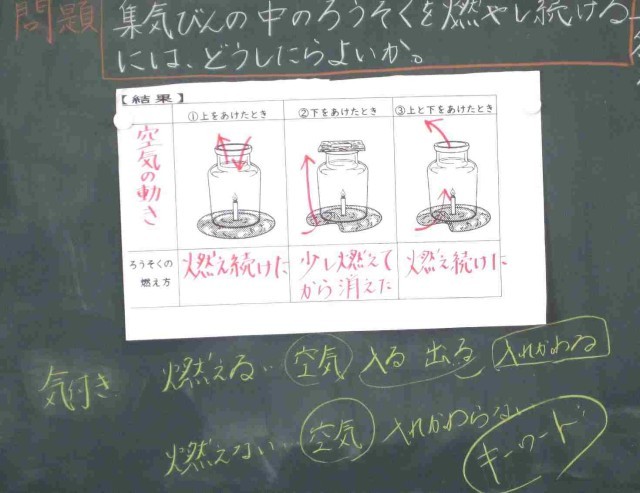 問題
集気びんの中のろうそくを燃やし続ける
には、どうしたらよいか。
【結果】
①上をあけたとき
②下をあけたとき
③上と下をあけたとき
空気の動き
ろうそくの
燃え方
燃え続けた
少し燃えて
から消えた
燃え続けた
気付き 燃える… 空気 入る 出る 入れかわる
燃えない… 空気 入れかわらない
キーワード